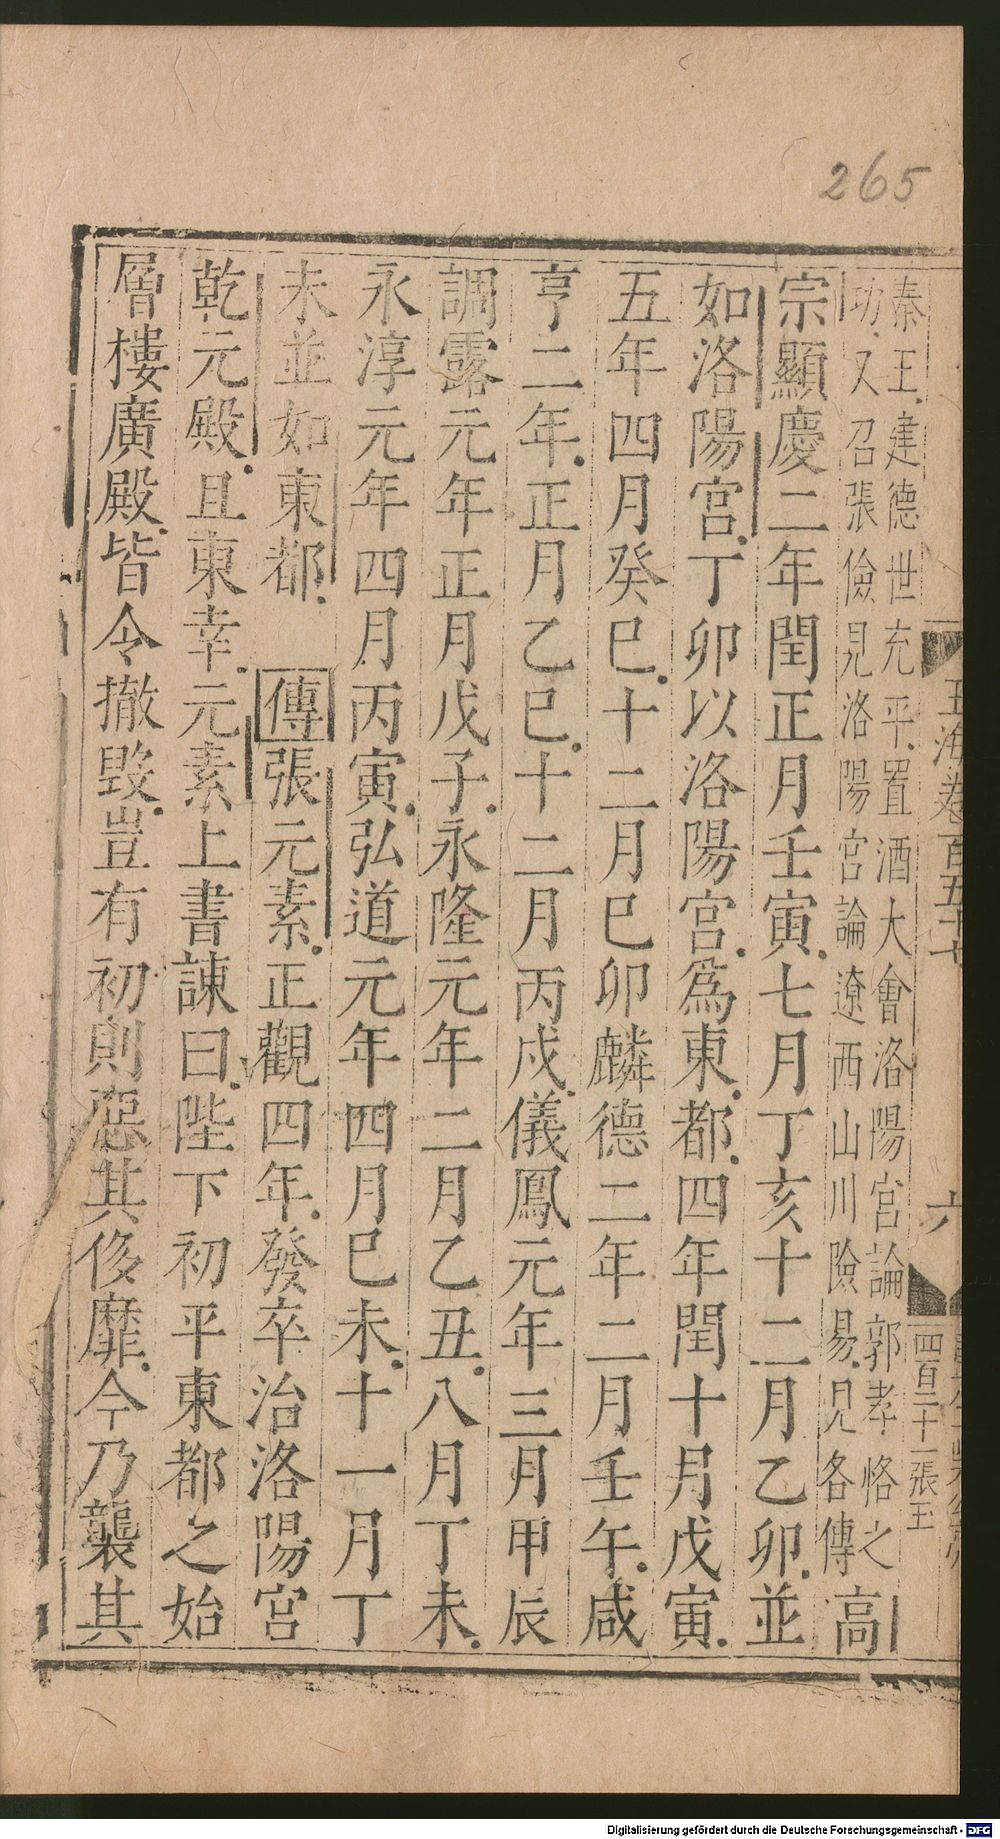 265
玉海卷百五十七
六
四百二十一張玉
秦王建德世充平置酒大會洛陽宮論郭孝恪之
功又召張儉見洛陽宮論遼西山川險易見各傳
高
宗顯慶二年閏正月壬寅七月丁亥十二月乙卯並
如洛陽宮丁卯以洛陽宮爲東都四年閏十月戊寅
五年四月癸巳十二月巳卯麟德二年二月壬午咸
亨二年正月乙巳十二月丙戍儀鳳元年三月甲辰
調露元年正月戊子永隆元年二月乙丑八月丁未
永淳元年四月丙寅弘道元年四月巳未十一月丁
未並如東都傳張元素正觀四年發卒治洛陽宮
乾元殿且東幸元素上書諫曰陛下初平東都之始
層樓廣殿皆令撤毀豈有初則惡其侈靡今乃襲其
Digitalisierung gefördert durch die Deutsche Forschungsgemeinschaft - DFG